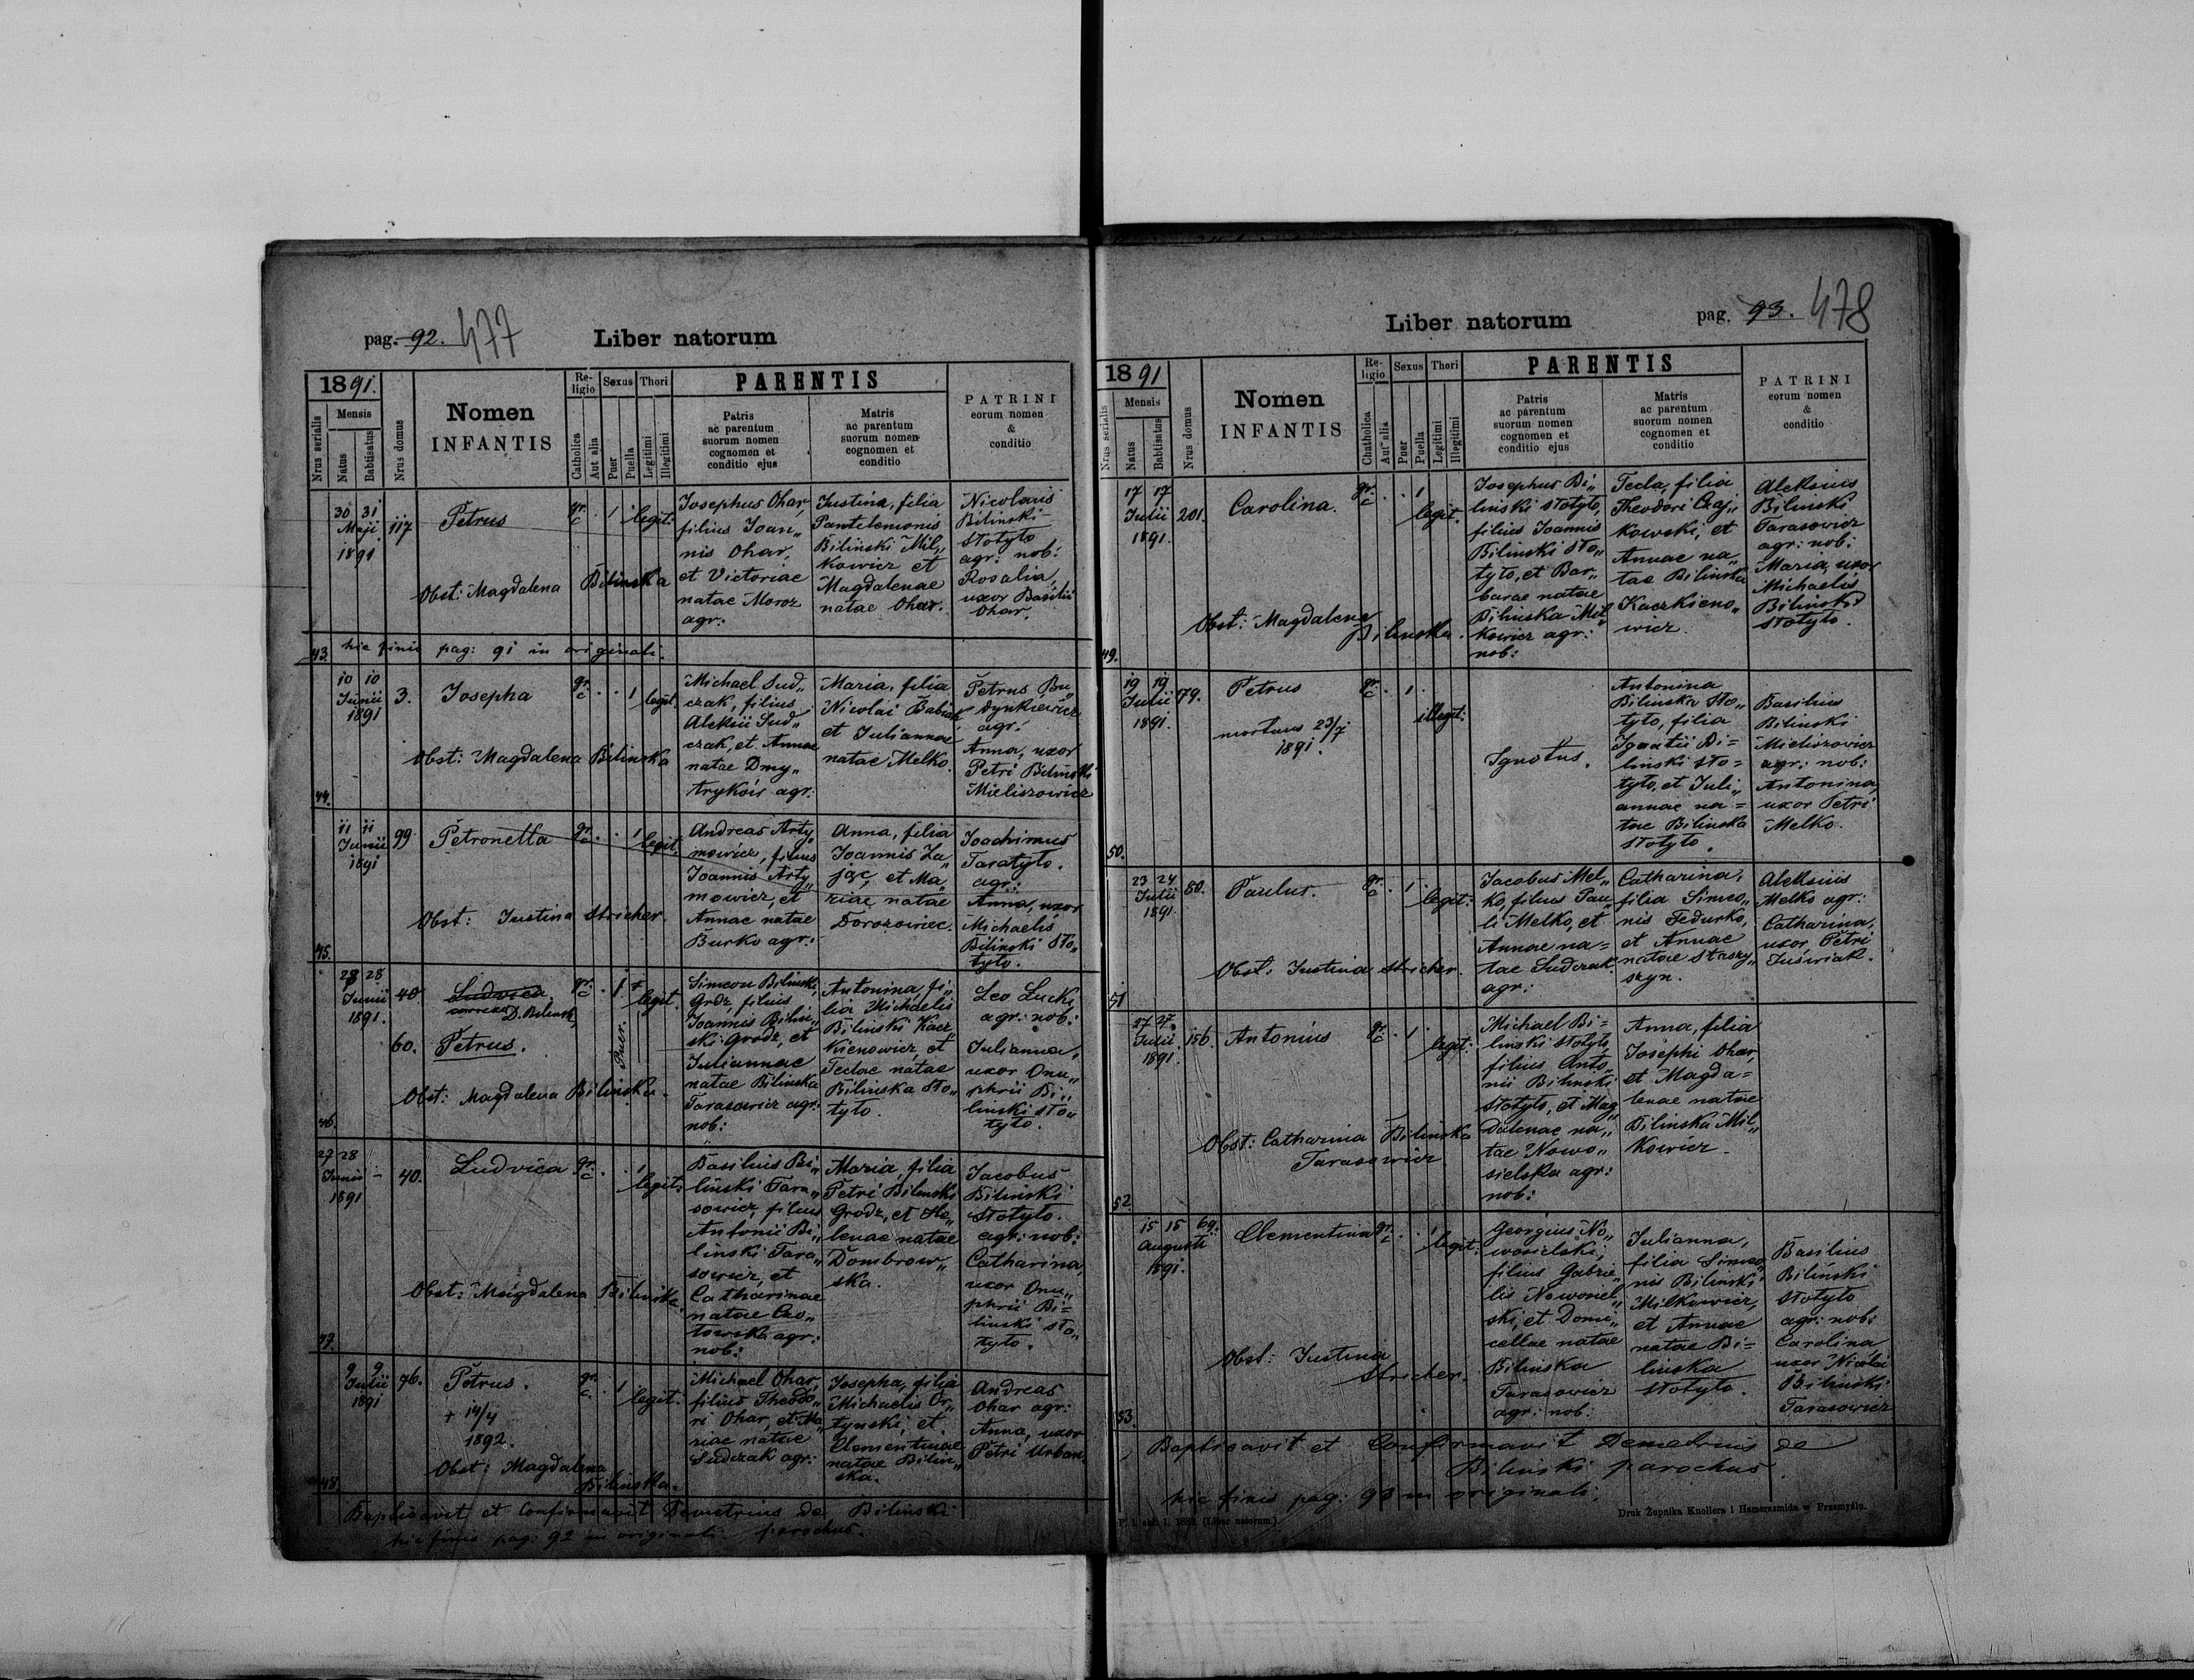 pag. 92. 477
Liber natorum
1891.
Nrus serialis
Mensis
Natus
Babtisatus
Nrus domus
Nomen
INFANTIS
Re-
ligio
Catholica
Aut alia
Sexus
Puer
Puella
Thori
Legitimi
Illegitimi
PARENTIS
Patris
ac parentum
suorum nomen
cognomen et
conditio ejus
Matris
ac parentum
suorum nomen
cognomen et
conditio
PATRINI
eorum nomen
&
conditio
43.
30 31
Maji
1891
117
Petrus
gr.
c
1
legit:
Obst: Magdalena Bilinska
Josephus Ohar,
filius Joan„
nis Ohar,
et Victoriae
natae Moroz
agr:
Justina, filia
Pantelemonis
Bilinski Mil„
kowicz et
Magdalenae
natae Ohar.
Nicolaus
Bilinski
Stotyto
agr: nob:
Rosalia,
uxor Basilii
Ohar.
hic finis pag: 91 in originali.
44.
10 10
Junii
1891
3.
Josepha
gr.
c
1
legit:
Obst: Magdalena Bilinska
Michael Sud„
czak, filius
Aleksii Sud„
czak, et Annae
natae Dmy„
trykoir agr:
Maria, filia
Nicolai Babiak
et Juliannae
natae Melko.
Petrus Bu„
dynkiewicz
agr:
Anna, uxor
Petri Bilinski
Mieliszowicz
45.
11 11
Junii
1891
99
Petronella
gr.
c
1
legit:
Obst: Justina Stricher.
Andreas Arty„
mowicz, filius
Joannis Arty„
mowicz, et
Annae natae
Burko agr:
Anna, filia
Joannis Za„
jąc, et Ma„
riae natae
Dorozowiec.
Joachimus
Taratyto.
agr:
Anna, uxor
Michaelis
Bilinski Sto„
tyto.
46.
28 28
Junii
1891.
40
Ludvica
D. Bilinski
60. Petrus.
gr.
c
1.
Puer.
legit.
Obst: Magdalena Bilinska.
Simeon Bilinski,
Grodz, filius
Joannis Bilin„
ski Grodz, et
Juliannae
natae Bilinska
Tarasowicz agr:
nob:
Antonina, fi„
lia Michaelis
Bilinski Kacz„
kienowicz, et
Teclae natae
Bilinska Sto„
tyto.
Leo Lucki
agr: nob:
Julianna,
uxor Onu„
phrii Bi„
linski Sto„
tyto.
47.
27 28
Junii
1891
40.
Ludvica
gr.
c
1
legit:
Obst: Magdalena Bilinska.
Basilius Bi„
linski Tara„
sowicz, filius
Antonii Bi„
linski Tara„
sowicz, et
Catharinae
natae Czo„
towska agr:
nob:
Maria, filia
Petri Bilinski
Grodz, et He„
lenae natae
Dombrow„
ska.
Jacobus
Bilinski
Stotyto.
agr: nob:
Catharina,
uxor Onu„
phrii Bi=
linski Sto„
tyto.
48.
9 9
Julii
1891
76.
Petrus.
+ 14/4
1892.
gr.
c.
1
legit.
Obst: Magdalena
Bilinska.
Michael Ohar,
filius Theodo„
ri Ohar, et Ma„
riae natae
Sudczak agr:
Josepha, filia
Michaelis Or„
tynski, et
Clementinae
natae Bilin„
ska.
Andreas
Ohar agr:
Anna, uxor
Petri Urban.
Baptisavit et Confirmavit Demetrius de Bilinski
hic finis pag: 92 in originali. parochus.
pag. 93. 478
Liber natorum
1891
Nrus serialis
Mensis
Natus
Babtisatus
Nrus domus
Nomen
INFANTIS
Re-
ligio
Chatholica
Aut alia
Sexus
Puer
Puella
Thori
Legitimi
Illegitimi
PARENTIS
Patris
ac parentum
suorum nomen
cognomen et
conditio ejus
Matris
ac parentum
suorum nomen
cognomen et
conditio
PATRINI
eorum nomen
&
conditio
49.
17 17
Julii
1891.
201.
Carolina.
gr.
c
1
legit.
Obst: Magdalena
Bilinska.
Josephus Bi„
linski Stotyto,
filius Joannis
Bilinski Sto„
tyto, et Bar„
barae natae
Bilinska Mil„
kowicz agr:
nob:
Tecla, filia
Theodori Czaj„
kowski, et
Annae na„
tae Bilinska
Kaczkieno„
wicz.
Aleksius
Bilinski
Tarasowicz
agr: nob:
Maria, uxor
Michaelis
Bilinski
Stotyto.
50.
19 19
Julii
1891.
179.
Petrus
mortuus 23/7
1891.
gr.
c
1.
illegit:
Ignotus.
Antonina
Bilinska Sto„
tyto, filia
Ignatii Bi=
linski Sto=
tyto, et Juli„
annae na=
tae Bilinska
Stotyto.
Basilius
Bilinski
Mieliszowicz
agr: nob:
Antonina,
uxor Petri
Melko.
51
23 24
Julii
1891.
80.
Paulus.
gr.
c
1
legit:
Obst: Justina Stricher.
Jacobus Mel„
ko, filius Pau„
li Melko, et
Annae na=
tae Sudczak.
agr:
Catharina,
filia Simeo„
nis Fedurko,
et Annae
natae Staszy„
szyn.
Aleksius
Melko agr:
Catharina,
uxor Petri
52.
27 27.
Julii
1891.
156.
Antonius
gr.
c
1
legit:
Obst: Catharina Bilinska
Tarasowicz
Michael Bi=
linski Stotyto
filius Anto„
nii Bilinski
Stotyto, et Mag„
dalenae na„
tae Nowo„
sielska agr:
nob:
Anna, filia
Josephi Ohar,
et Magda=
lenae natae
Bilinska Mil„
kowicz.
53.
15 15
Augusti
1891.
69.
Clementina
gr.
c
1
legit:
Obst: Justina
Stricher.
Georgius No„
wosielski,
filius Gabrie„
lis Nowosiel„
ski, et Domi„
cellae natae
Bilinska
Tarasowicz
agr: nob:
Julianna,
filia Simeo„
nis Bilinski
Milkowicz,
et Annae
natae Bi=
linska
Stotyto.
Basilius
Bilinski
Stotyto
agr: nob:
Carolina
uxor Nicolai
Bilinski
Tarasowicz
Baptisavit et Confirmavit Demetrius de
Bilinski parochus.
hic finis pag: 93 in originali.
Druk Żupnika Knollera i Hamerszmida w Przemyślu.
(Liber natorum.)